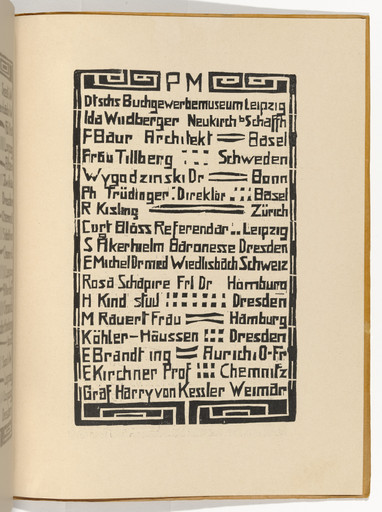 P M
Dtschs Buchgewerbemuseum Leipzig
Ida Wildberger Neukirch b Schaffh
F Baur Architekt Basel
Fräu Tillberg Schweden
Wygodzinski Dr Bonn
Ph Trüdinger Direktör Basel
R Kisling Zürich
Curt Blöss Referendär Leipzig
S Åkerhielm Bäronesse Dresden
E Michel Dr med Wiedlisbäch Schweiz
Rosa Schäpire Frl Dr Hämburg
H Kind stud Dresden
M Räuert Fräu Hämburg
Köhler-Häussen Dresden
E Brandt ing Äurich i O-Fr
E Kirchner Prof Chemnitz
Gräf Harry von Kessler Weimär